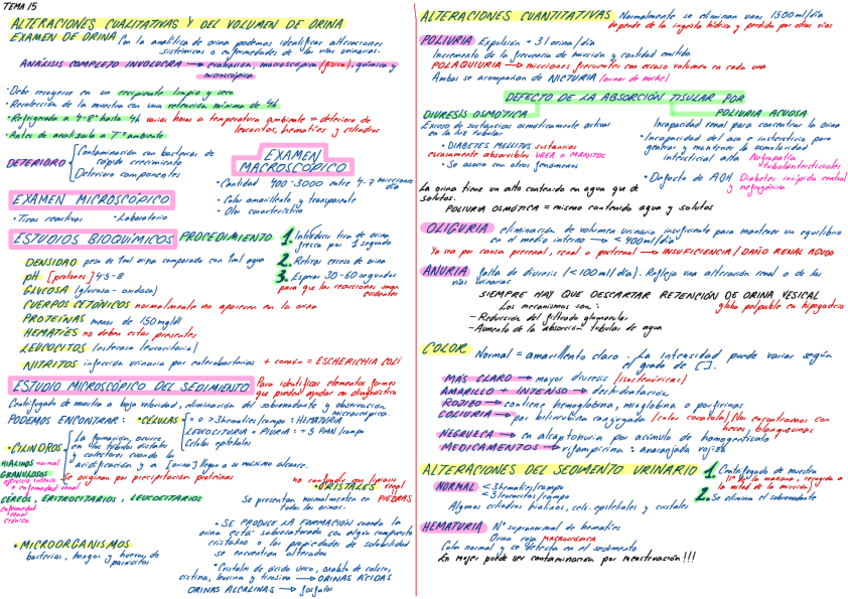 TEMA 15
ALTERACIONES CUALITATIVAS Y DEL VOLUMEN DE ORINA
EXAMEN DE ORINA Con la analítica de orina podemos identificar alteraciones
sistémicas o enfermedades de las vías urinarias.
ANÁLISIS COMPLETO INVOLUCRA → evaluación, macroscópica (física), química y
microscópica
·Debe recogerse en un recipiente limpio y seco
·Recolección de la muestra con una retención mínima de 4h
·Refrigerada a 4-8° hasta 4h varias horas a temperatura ambiente = deterioro de
leucocitos, hematíes y cilindros
·Antes de analizarla a T° ambiente
DETERIORO
Contaminación con bacterias de
rápido crecimiento
Deterioro componentes
EXAMEN
MACROSCÓPICO
·Cantidad 400-3000 entre 4-7 micciones
día
·Color amarillento y transparente
·Olor característico
EXAMEN MICROSCÓPICO
·Tiras reactivas ·Laboratorio
ESTUDIOS BIOQUÍMICOS PROCEDIMIENTO 1. Introducir tira de orina
fresca por 1 segundo
2. Retirar exceso de orina
3. Esperar 30-60 segundos
para que las reacciones sean
evidentes
DENSIDAD peso de 1ml orina comparado con 1ml agua
pH [protones] 4,5-8
GLUCOSA (glucosa-oxidasa)
CUERPOS CETÓNICOS normalmente no aparecen en la orina
PROTEÍNAS menos de 150mg/dl
HEMATÍES no deben estar presentes
LEUCOCITOS (esterasa leucocitaria)
NITRITOS infección urinaria por enterobacterias + común = ESCHERICHIA COLI
ESTUDIO MICROSCÓPICO DEL SEDIMENTO Para identificar elementos formes
que puedan ayudar en diagnóstico
Centrifugado de muestra a baja velocidad, eliminación del sobrenadante y observación
microscópica.
PODEMOS ENCONTRAR: ·CÉLULAS
= o >3hematíes/campo: HEMATURIA
LEUCOCITURIA - PIURIA: +5 PMN/campo
Células epiteliales
·CILINDROS
La formación ocurre
en los túbulos distales
y colectores cuando la
acidificación y a [orina] llegan a su máximo alcance.
HIALINOS normal
GRANULOSOS
ejercicio intenso
o enfermedad renal
Se originan por precipitación proteínas
CÉREOS, ERITROCITARIOS, LEUCOCITARIOS
enfermedad
renal
crónica
no confundir con litiasis
renal
·CRISTALES
PIEDRAS
Se presentan normalmente en
todas las orinas.
·SE PRODUCE LA FORMACIÓN cuando la
orina está sobresaturada con algún compuesto
cristalino o las propiedades de solubilidad
se encuentran alteradas
·Cristales de ácido úrico, oxalato de calcio,
cistina, leucina y tirosina → ORINAS ÁCIDAS
ORINAS ALCALINAS → fosfatos
·MICROORGANISMOS
bacterias, hongos y huevos de
parásitos
ALTERACIONES CUANTITATIVAS Normalmente se eliminan unos 1500ml/día
depende de la ingesta hídrica y perdida por otras vías
POLIURIA Expulsión +3l orina/día
Incremento de la frecuencia de micción y cantidad emitida
POLAQUIURIA → micciones frecuentes con escaso volumen en cada una
Ambas se acompañan de NICTURIA (orinar de noche)
DEFECTO DE LA ABSORCIÓN TISULAR POR
DIURESIS OSMÓTICA
Exceso de sustancias osmóticamente activas
en la luz tubular
·DIABETES MELLITUS sustancias
escasamente absorbibles UREA o MANITOL
·Se asocia con otros fenómenos
La orina tiene un alto contenido en agua que de
solutos.
POLIURIA OSMÓTICA = mismo contenido agua y solutos
POLIURIA ACUOSA
Incapacidad renal para concentrar la orina
·Incapacidad del asa e intersticio para
generar y mantener la osmolaridad
intersticial alta Nefropatía
tubulointersticiales
·Defecto de ADH Diabetes insípida central
y nefrogénica
OLIGURIA eliminación de volumen urinario insuficiente para mantener un equilibrio
en el medio interno → <400ml/día
Ya sea por causa prerrenal, renal o postrenal → INSUFICIENCIA/DAÑO RENAL AGUDO
ANURIA falta de diuresis (<100ml/día). Refleja una alteración renal o de las
vías urinarias
SIEMPRE HAY QUE DESCARTAR RETENCIÓN DE ORINA VESICAL
globo palpable en hipogastrio
Los mecanismos son:
-Reducción del filtrado glomerular
-Aumento de la absorción tubular de agua
COLOR Normal = amarillento claro. La intensidad puede variar según
el grado de [].
MÁS CLARO → mayor diuresis (isostenúricas)
AMARILLO + INTENSO → deshidratación
ROJIZO → contiene hemoglobina, mioglobina o porfirinas
COLIURIA → por bilirrubina conjugada (color cocacola) Nos encontramos con
heces blanquecinas
NEGRUZCA → en alcaptonuria por acúmulo de homogentisato
MEDICAMENTOS → rifampicina: anaranjada rojiza
ALTERACIONES DEL SEDIMENTO URINARIO 1. Centrifugado de muestra
(1° de la mañana, recogida a
la mitad de la micción)
2. Se elimina el sobrenadante
NORMAL <3hematíes/campo
<5leucocitos/campo
Algunos cilindros hialinos, cels. epiteliales y cristales
HEMATURIA N° supranormal de hematíes
Orina roja MACROSCÓPICA
Color normal y se detecta en el sedimento
En mujer puede ser contaminación por menstruación!!!